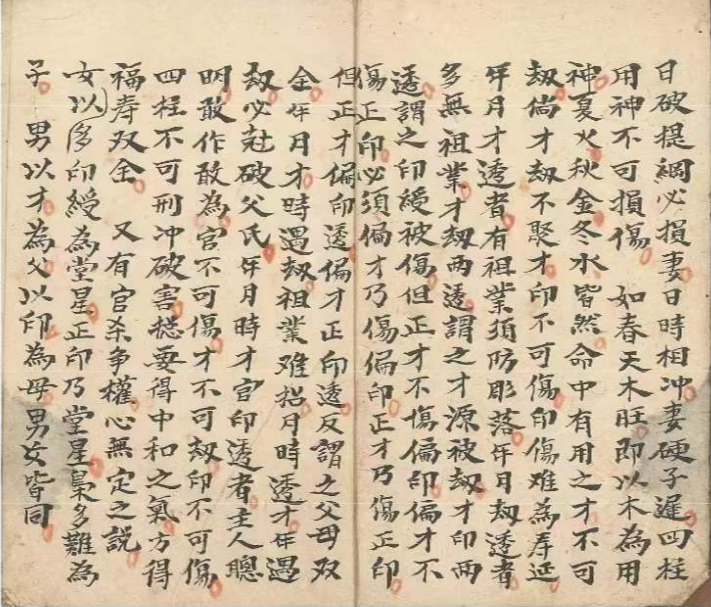 日破提綱必損妻日時相冲妻硬子遲四柱
用神不可損傷 如春天木旺即以木為用
神夏火秋金冬水皆然命中有用之才不可
劫倘才劫不聚才印不可傷印傷难為寿延
年月才透者有祖業須防彫落年月劫透者
多無祖業才劫兩透謂之才源被劫才印兩
透謂之印綬被傷但正才不傷偏印偏才不
傷正印必須偏才乃傷偏印正才乃傷正印
但正才偏印透偏才正印透反謂之父母双
全年月才時遇劫祖業难招月時透才年遇
劫必尅破父氏年月時才官印透者主人聰
明敢作敢為官不可傷才不可劫印不可傷
四柱不可刑冲破害揔要得中和之氣方得
福寿双全 又有官杀争權心無定之説
女以多印綬為堂星正印乃堂星梟多難為
子 男以才為父以印為母男女皆同